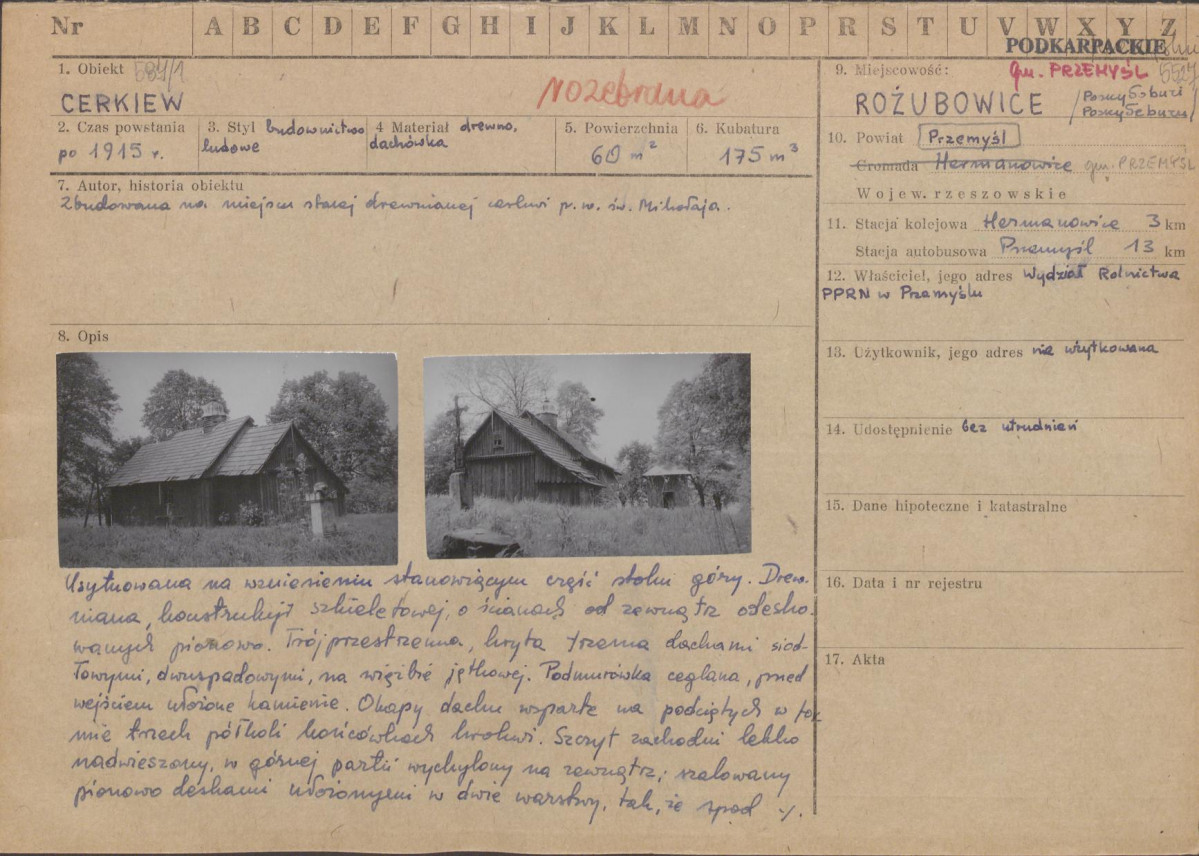 Nr A B C D E F G H I J K L M N O P R S T U V W X Y Z
PODKARPACKIE
1. Obiekt 584/1
CERKIEW
rozebrana
2. Czas powstania
po 1915 r.
3. Styl budownictwo
ludowe
4 Materiał drewno,
dachówka
5. Powierzchnia
60 m²
6. Kubatura
175 m³
7. Autor, historia obiektu
Zbudowana na miejscu starej drewnianej cerkwi p.w. św. Mikołaja.
8. Opis
Usytuowana na wzniesieniu stanowiącym część stoku góry. Drew-
niana, konstrukcji szkieletowej, o ścianach od zewnątrz odesko-
wanych pionowo. Trójprzestrzenna, kryta trzema dachami siod-
łowymi, dwuspadowymi, na więźbie jętkowej. Podmurówka ceglana, przed
wejściem ułożone kamienie. Okapy dachu wsparte na podciętych w for-
mie trzech półkoli końcówkach krokwi. Szczyt zachodni lekko
nadwieszony, w górnej partii wychylony na zewnątrz; szalowany
pionowo deskami ułożonymi w dwie warstwy, tak, że spod ·/.
9. Miejscowość: gm. PRZEMYŚL 5527
ROŻUBOWICE
10. Powiat Przemyśl
Gromada Hermanowice gm. PRZEMYŚL
Wojew. rzeszowskie
11. Stacja kolejowa Hermanowice 3 km
Stacja autobusowa Przemyśl 13 km
12. Właściciel, jego adres Wydział Rolnictwa
PPRN w Przemyślu
13. Użytkownik, jego adres nie użytkowana
14. Udostępnienie bez utrudnień
15. Dane hipoteczne i katastralne
16. Data i nr rejestru
17. Akta